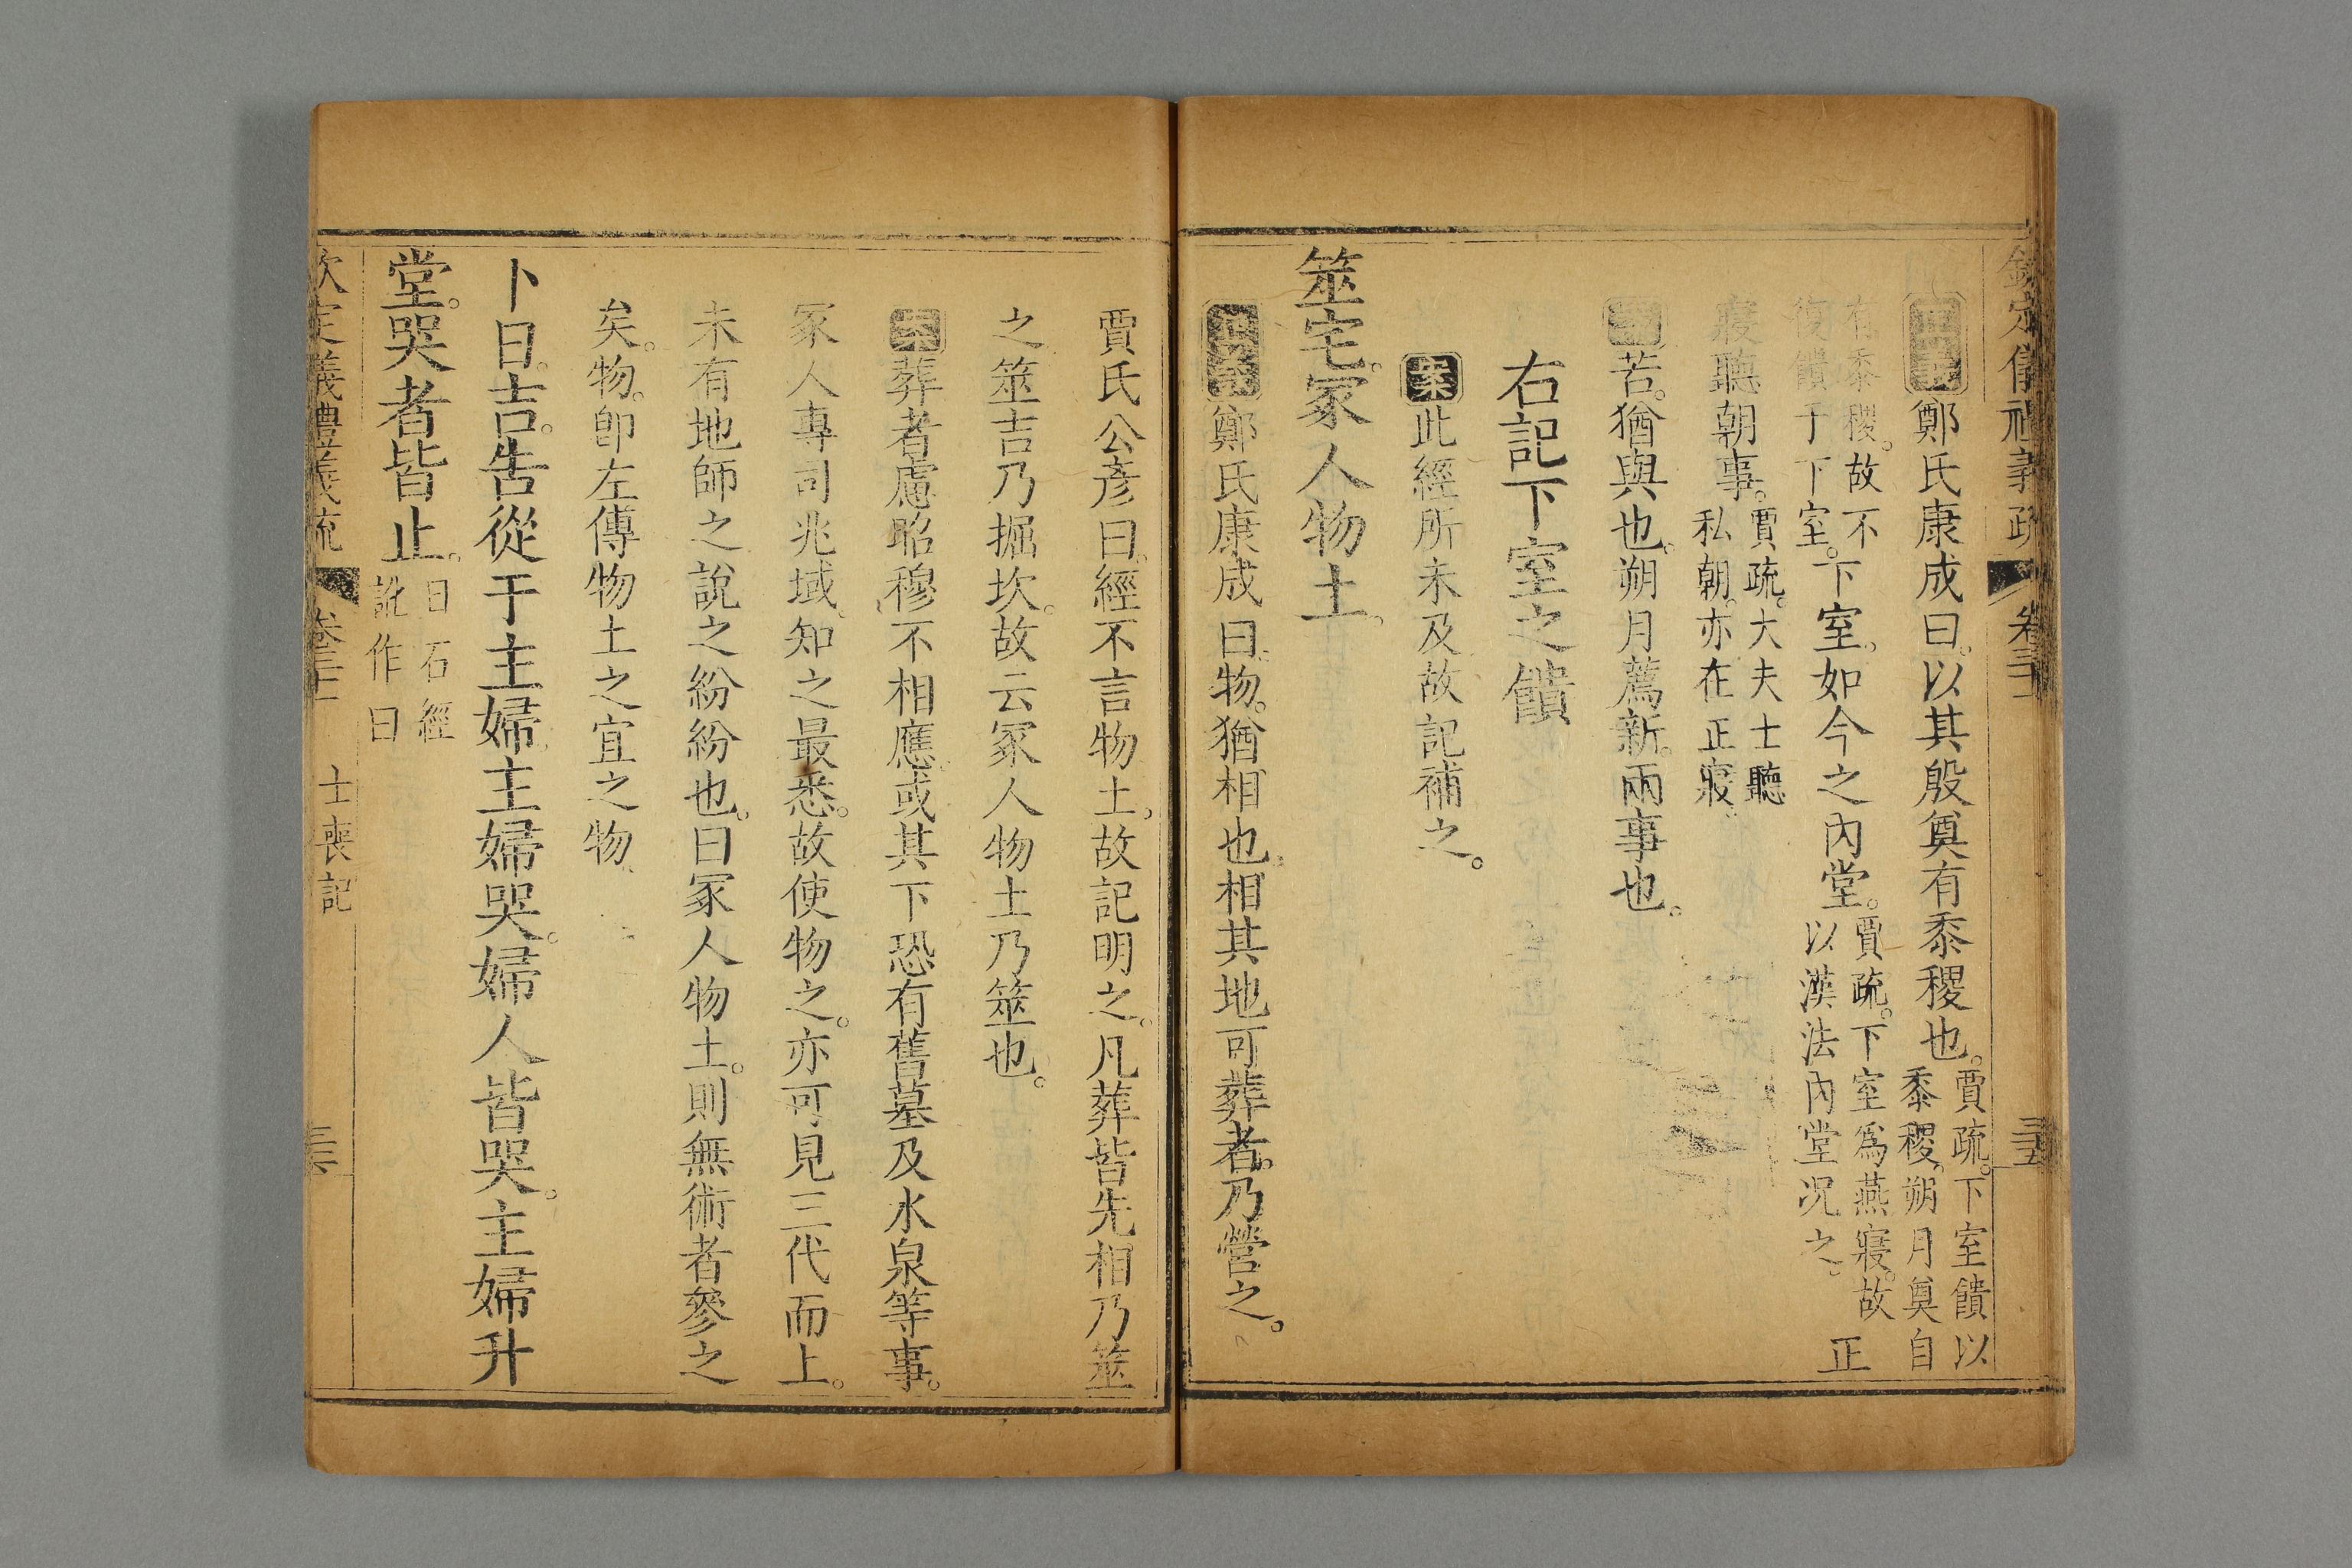 欽定儀禮義疏 卷三十 三五
正義鄭氏康成曰。以其殷奠有黍稷也。賈疏。下室饋以
黍稷。朔月奠自
有黍稷。故不
復饋于下室。下室。如今之內堂。賈疏。下室為燕寢。故
以漢法內堂况之。正
寢聽朝事。賈疏。大夫士聽
私朝。亦在正寢。
案若。猶與也。朔月薦新。兩事也。
右記下室之饋
案此經所未及故記補之。
筮宅。冢人物土。
正義鄭氏康成曰。物。猶相也。相其地可葬者。乃營之。
賈氏公彥曰。經不言物土。故記明之。凡葬皆先相乃筮
之筮吉乃掘坎。故云冢人物土乃筮也。
案葬者慮昭穆不相應。或其下恐有舊墓及水泉等事。
冢人專司兆域。知之最悉。故使物之。亦可見三代而上。
未有地師之說之紛紛也。曰冢人物土。則無術者參之
矣。物。卽左傳物土之宜之物
卜日。吉。告從于主婦。主婦哭。婦人皆哭。主婦升
堂。哭者皆止。日石經
訛作曰
欽定義禮義疏 卷三十 士喪記 三六